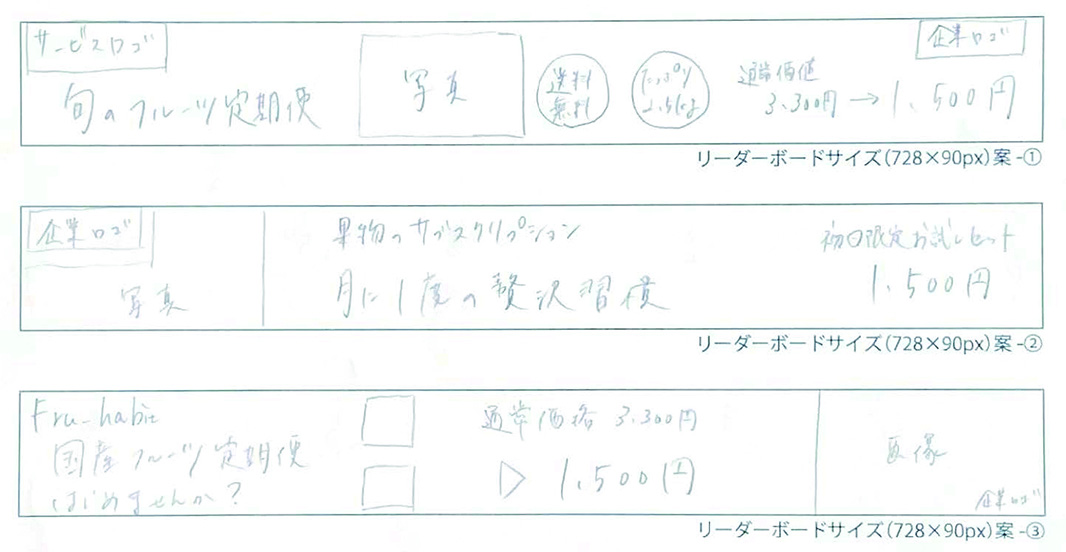 サービスロゴ
企業ロゴ
旬のフルーツ定期便
写真
送料
無料
たっぷり
2.5kg
通常価値
3.300円→1.500円
リーダーボードサイズ(728×90px)案-①
企業ロゴ
写真
果物のサブスクリプション
月に1度の贅沢習慣
初回限定お試しセット
1.500円
リーダーボードサイズ(728×90px)案-②
Fru-habit
国産フルーツ定期便
はじめませんか?
通常価格 3.300円
▷ 1.500円
画像
企業ロゴ
リーダーボードサイズ(728×90px)案-③